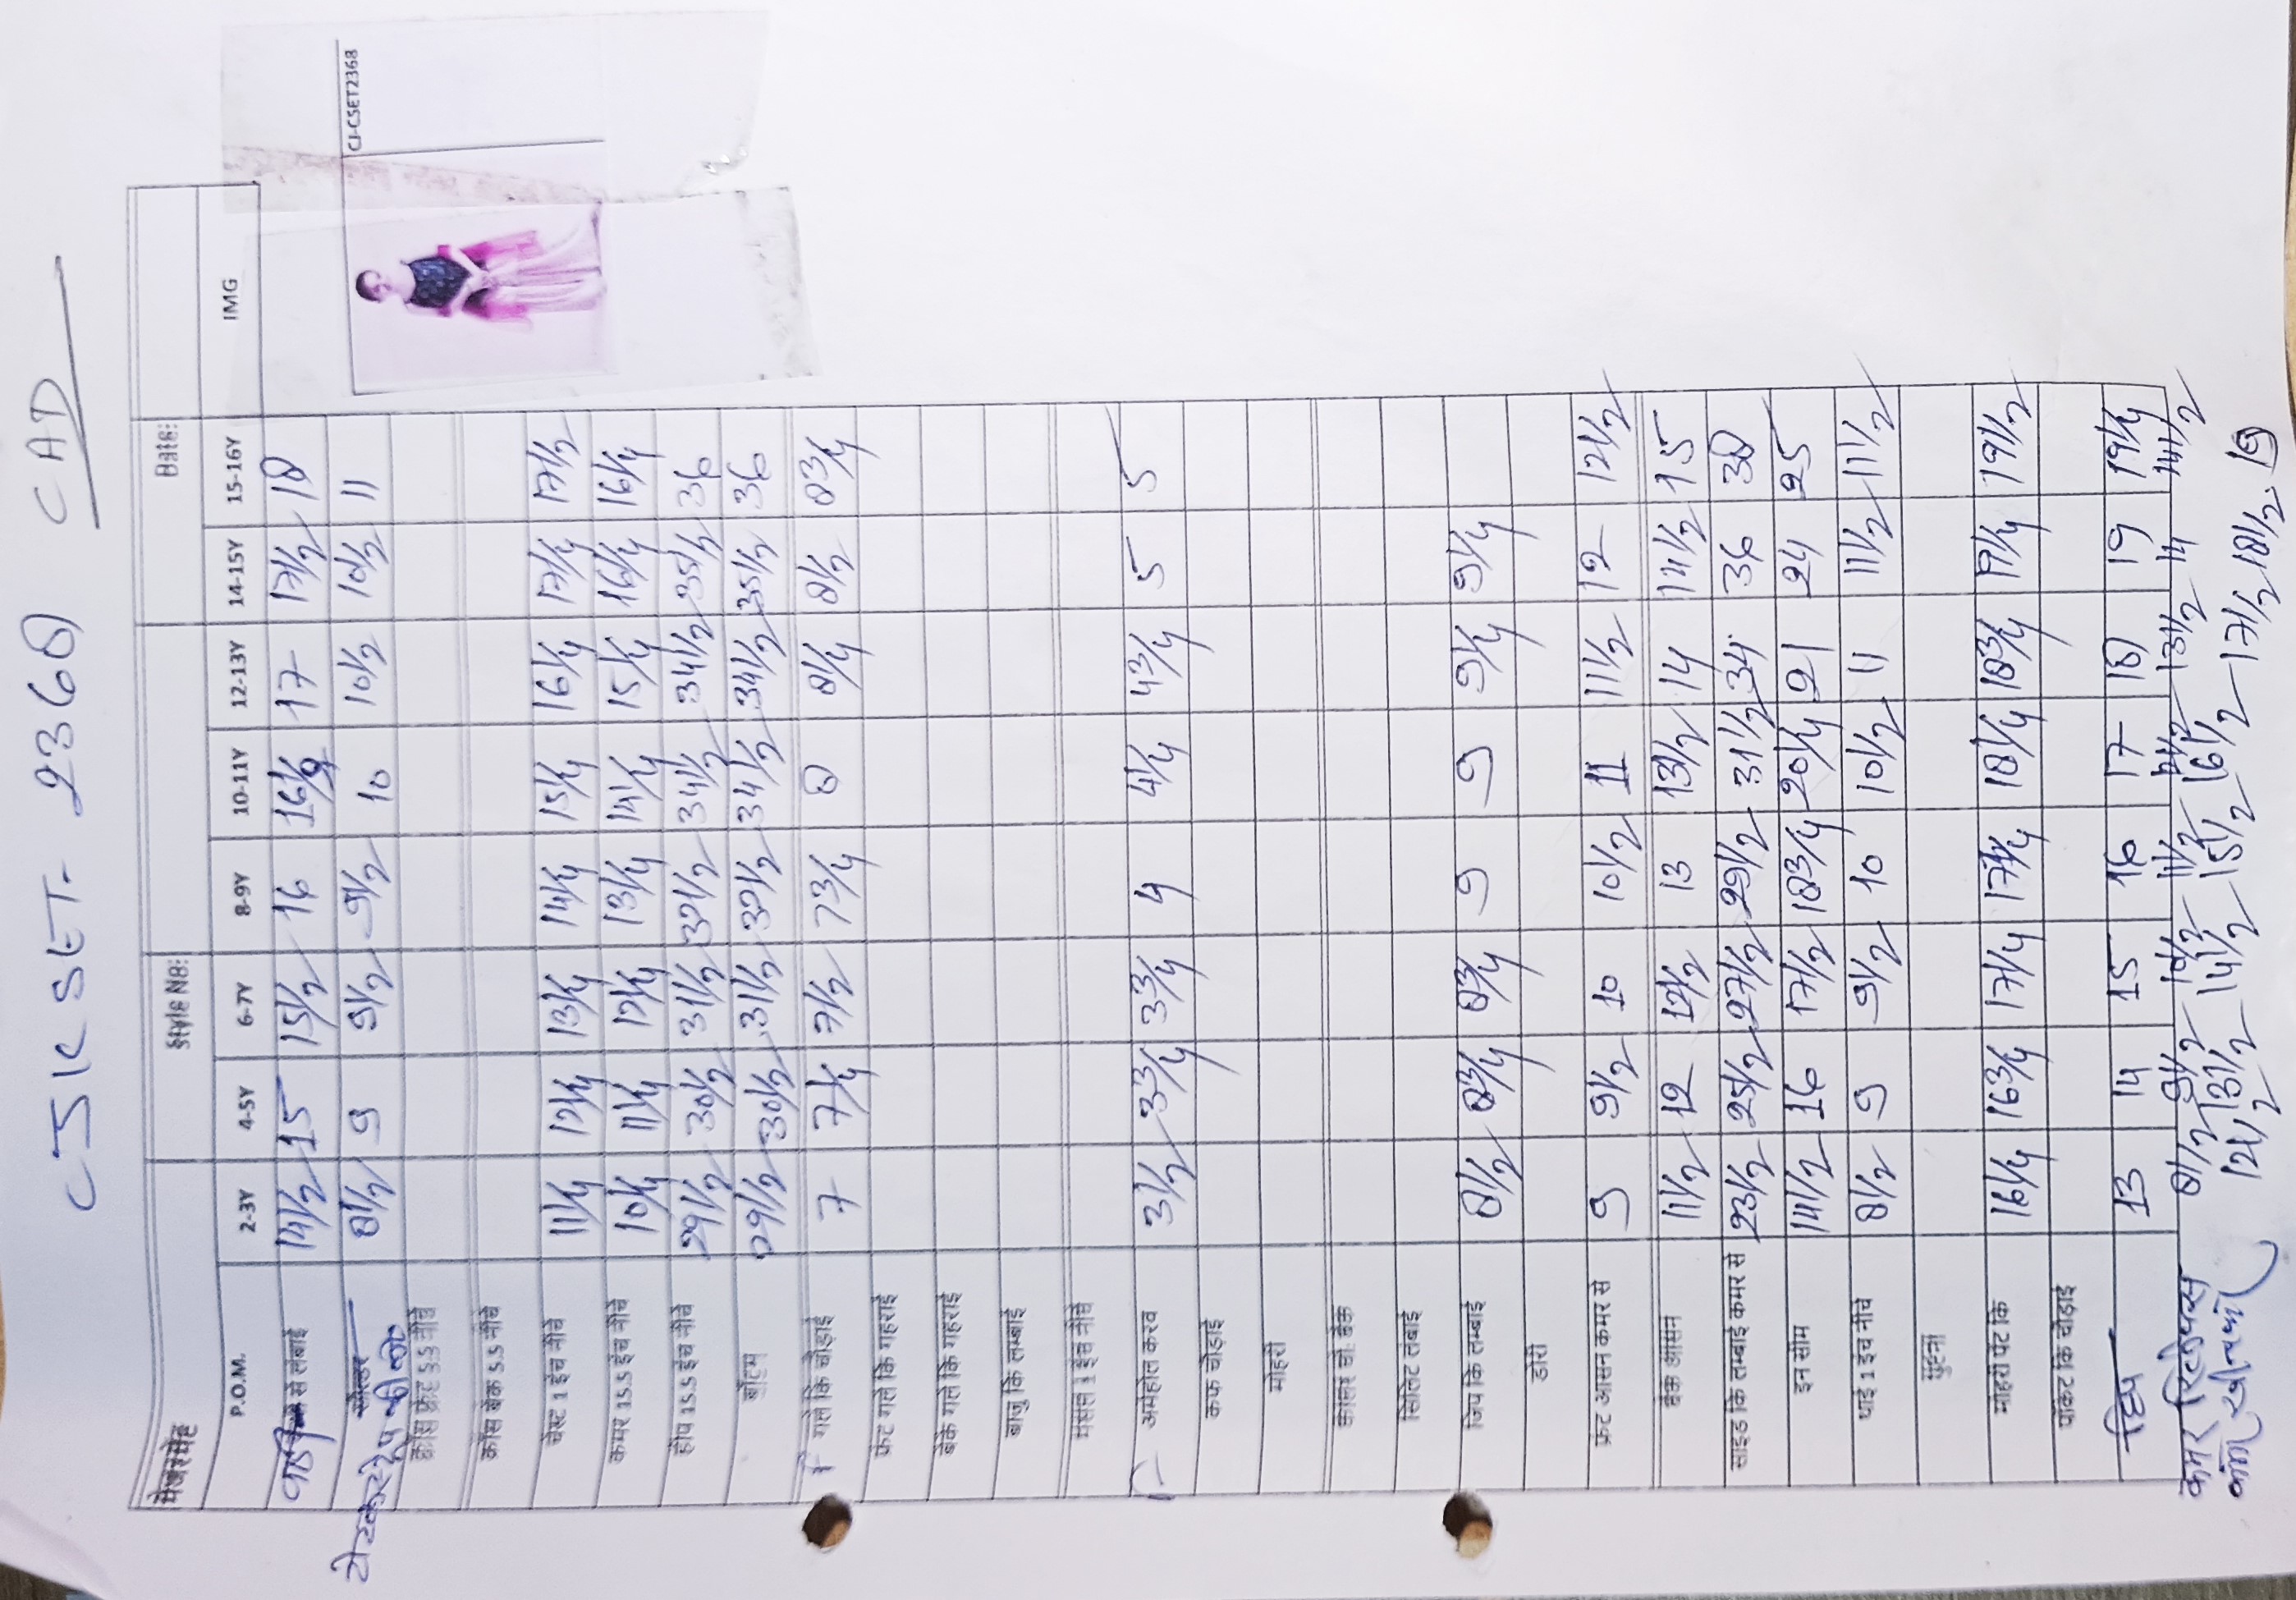 CJK SET- 2368 CAD
मेजरमेंट Style No: Date:
P.O.M. 2-3Y 4-5Y 6-7Y 8-9Y 10-11Y 12-13Y 14-15Y 15-16Y IMG
से लंबाई 14 1/2 15 15 1/2 16 16 1/2 17 17 1/2 18
शोल्डर 8 1/2 9 9 1/2 9 1/2 10 10 1/2 10 1/2 11
CJ-CSET2368
क्रॉस फ्रंट 5.5 नीचे
क्रॉस बेक 5.5 नीचे
चेस्ट 1 इंच नीचे 11 1/4 12 1/4 13 1/4 14 1/4 15 1/4 16 1/4 17 1/4 17 1/2
कमर 15.5 इंच नीचे 10 1/4 11 1/4 12 1/4 13 1/4 14 1/4 15 1/4 16 1/4 16 1/4
हीप 15.5 इंच नीचे 29 1/2 30 1/2 31 1/2 32 1/2 34 1/2 34 1/2 35 1/2 36
बॉटम 29 1/2 30 1/2 31 1/2 32 1/2 34 1/2 34 1/2 35 1/2 36
गले कि चौड़ाई 7 7 1/4 7 1/2 7 3/4 8 8 1/4 8 1/2 8 3/4
फ्रंट गले कि गहराई
बेक गले कि गहराई
बाजु कि लम्बाई
मसल 1 इंच नीचे
अर्महोल करव 3 1/2 3 3/4 3 3/4 4 4 1/4 4 3/4 5 5
कफ चौड़ाई
मोहरी
कालर बो. बैक
सिलिट लंबाई
जिप कि लम्बाई 8 1/2 8 3/4 8 3/4 9 9 9 1/4 9 1/4
डोरी
फ्रंट आसन कमर से 9 9 1/2 10 10 1/2 11 11 1/2 12 12 1/2
बैक आसन 11 1/2 12 12 1/2 13 13 1/2 14 14 1/2 15
साइड कि लम्बाई कमर से 23 1/2 25 1/2 27 1/2 29 1/2 31 1/2 34 36 38
इन सीम 14 1/2 16 17 1/2 18 3/4 20 1/4 21 24 25
थाई 1 इंच नीचे 8 1/2 9 9 1/2 10 10 1/2 11 11 1/2 11 1/2
घुटना
मोहरी पेट कि 16 1/4 16 3/4 17 1/4 17 3/4 18 1/4 18 3/4 19 1/4 19 1/2
पॉकेट कि चौड़ाई
हिप 13 14 15 16 17 18 19 19 1/4
कमर रिलेक्स 8 1/2 9 1/2 10 1/2 11 1/2 13 1/2 14 14 1/2
12 1/2 13 1/2 14 1/2 15 1/2 16 1/2 17 1/2 18 1/2 19